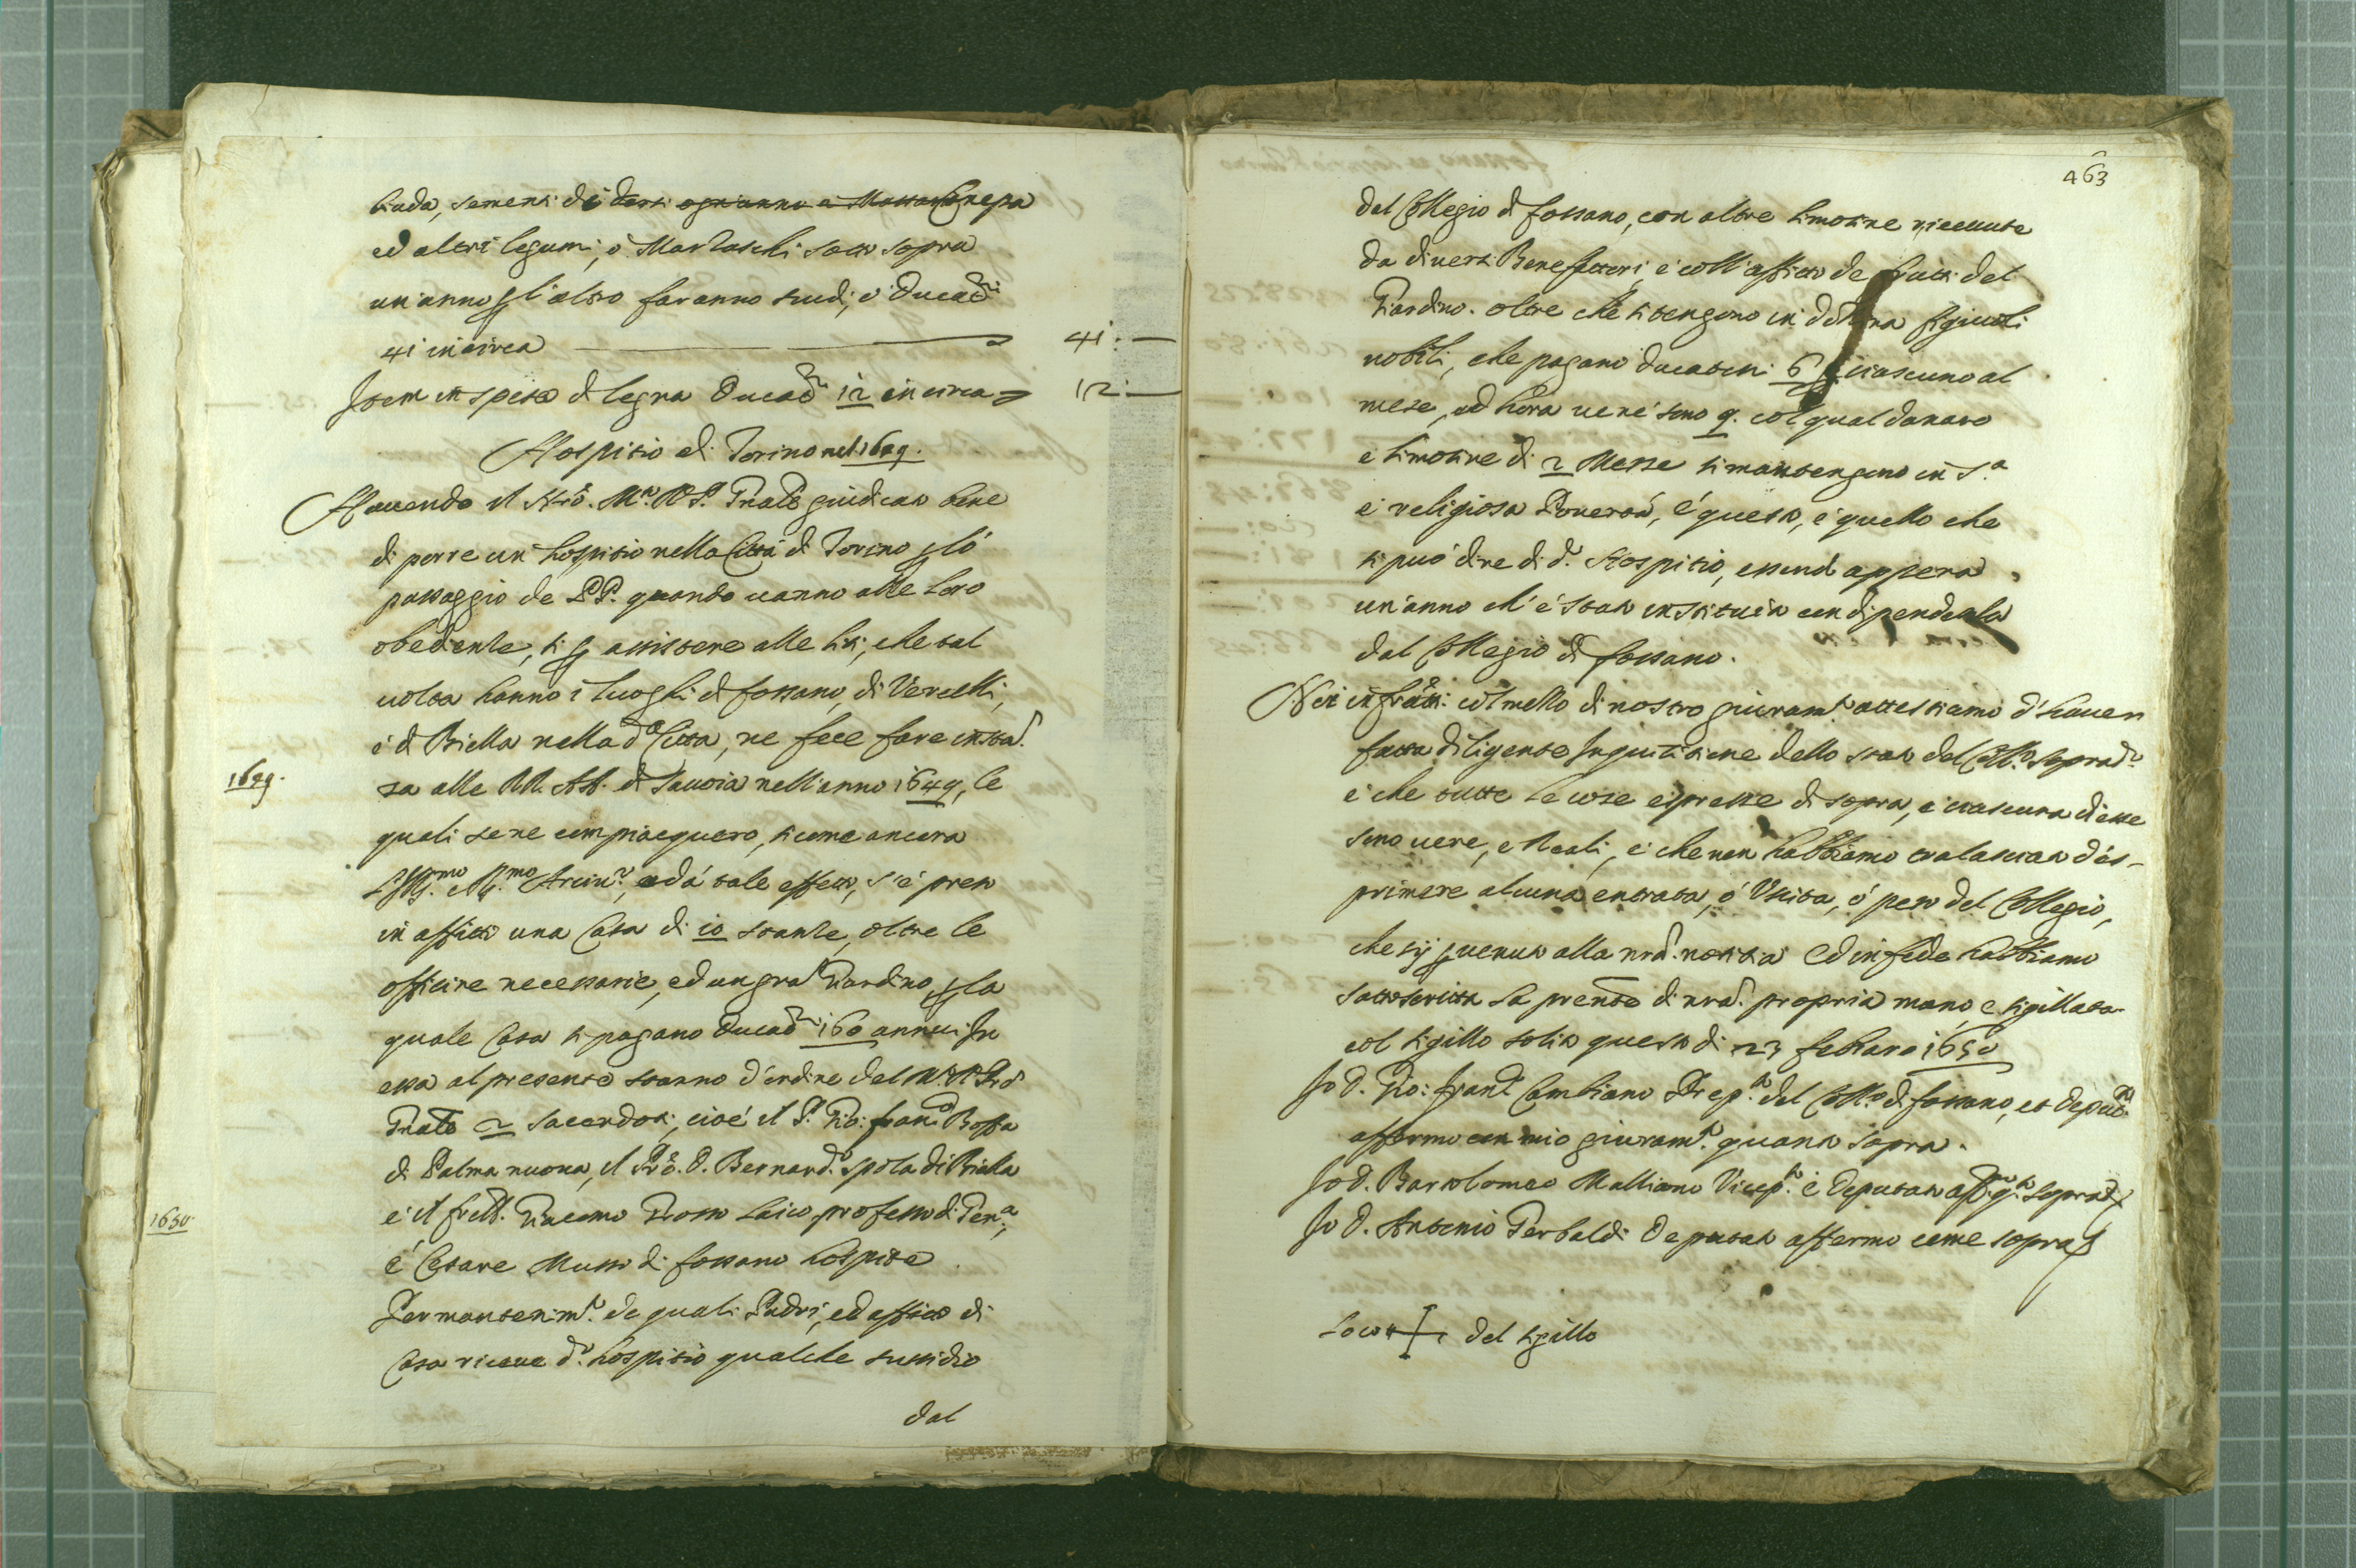 biada, sementi di darsi ogn'anno a Massari Canepa
ed altri legumi, ò Marzaschi sotto sopra
un'anno p l'altro faranno scudi, ò Ducad.ni
41 in circa 41: —
Item in spesa di legna Ducad.ni 12 in circa 12: —
Hospitio di Torino nel 1649.
Havendo il N.ro M. R. P. Gnale giudicato bene
di porre un hospitio nella Città di Torino p lo
passaggio de PP. quando vanno alle loro
obedienze, si p assistere alle liti, che tal
volta hanno i luoghi di Fossano, di Vercelli,
e di Biella nella d.a Città, ne fece fare instan.
1649.
za alle RR. AA. di Savoia nell'anno 1649, le
quali se ne compiacquero, si come ancora
l'Ill.mo e R.mo Arciv.o, ed à tale effetto, s'è preso
in affitto una Casa di 10 stanze, oltre le
officine necessarie, ed un gran Giardino, p la
quale Casa si pagano Ducad.ni 160 annui. In
essa al presente stanno d'ordine del M. R. P.re
Gnale 2 sacerdoti, cioè il P. Gio: Fran.co Bossa
di Palma nuova, il P.re D. Bernard.o Spola di Biella
1650.
e il frêllo Giacomo Grosso laico professo di Gen.a,
e Cesare Musso di Fossano hospite
Per mantenim.to de quali Padri, ed affitto di
Casa riceve d.o hospitio qualche sussidio
dal
463
dal Collegio di Fossano, con altre limosine ricevute
da diversi Benefattori, e coll'affitto de frutti del
Giardino. oltre che si tengono in dozina figiuoli
nobili, che pagano ducatoni 6 p ciascuno al
mese, ed hora ve ne sono 9. col qual danaro
e limosine di 2 Messe si mantengono in s.a
e religiosa Povertà, e questo, e quello che
si può dire di d.o Hospitio, essend appena
un'anno ch'è stato instituito con dipendenza
dal Collegio di Fossano.
Noi infratti col mezzo di nostro giuram.to attestiamo d'haver
fatta diligente Inquisitione dello stato del Coll.o soprad.o
e che tutte le cose espresse di sopra, e ciascuna di esse
sono vere, e Reali, e che non habbiamo tralasciato d'es-
primere alcuna entrata, ò Uscita, ò peso del Collegio,
che sij pvenuto alla nra. notitia Ed in fede habbiamo
sottoscritta la prente di nra. propria mano, e sigillata
col sigillo solito questo di 23 febraro 1650
Io D. Gio: Fran.co Cambiano Prep.to del Coll.o di Fossano, et Deput.to
affermo con mio giuram.to quanto sopra.
Io D. Bartolomeo Malliano Vicep.to e Deputato aff.mo q.to sopra
Io D. Antonio Gerbaldi Deputato affermo come sopra
Loco + del sigillo